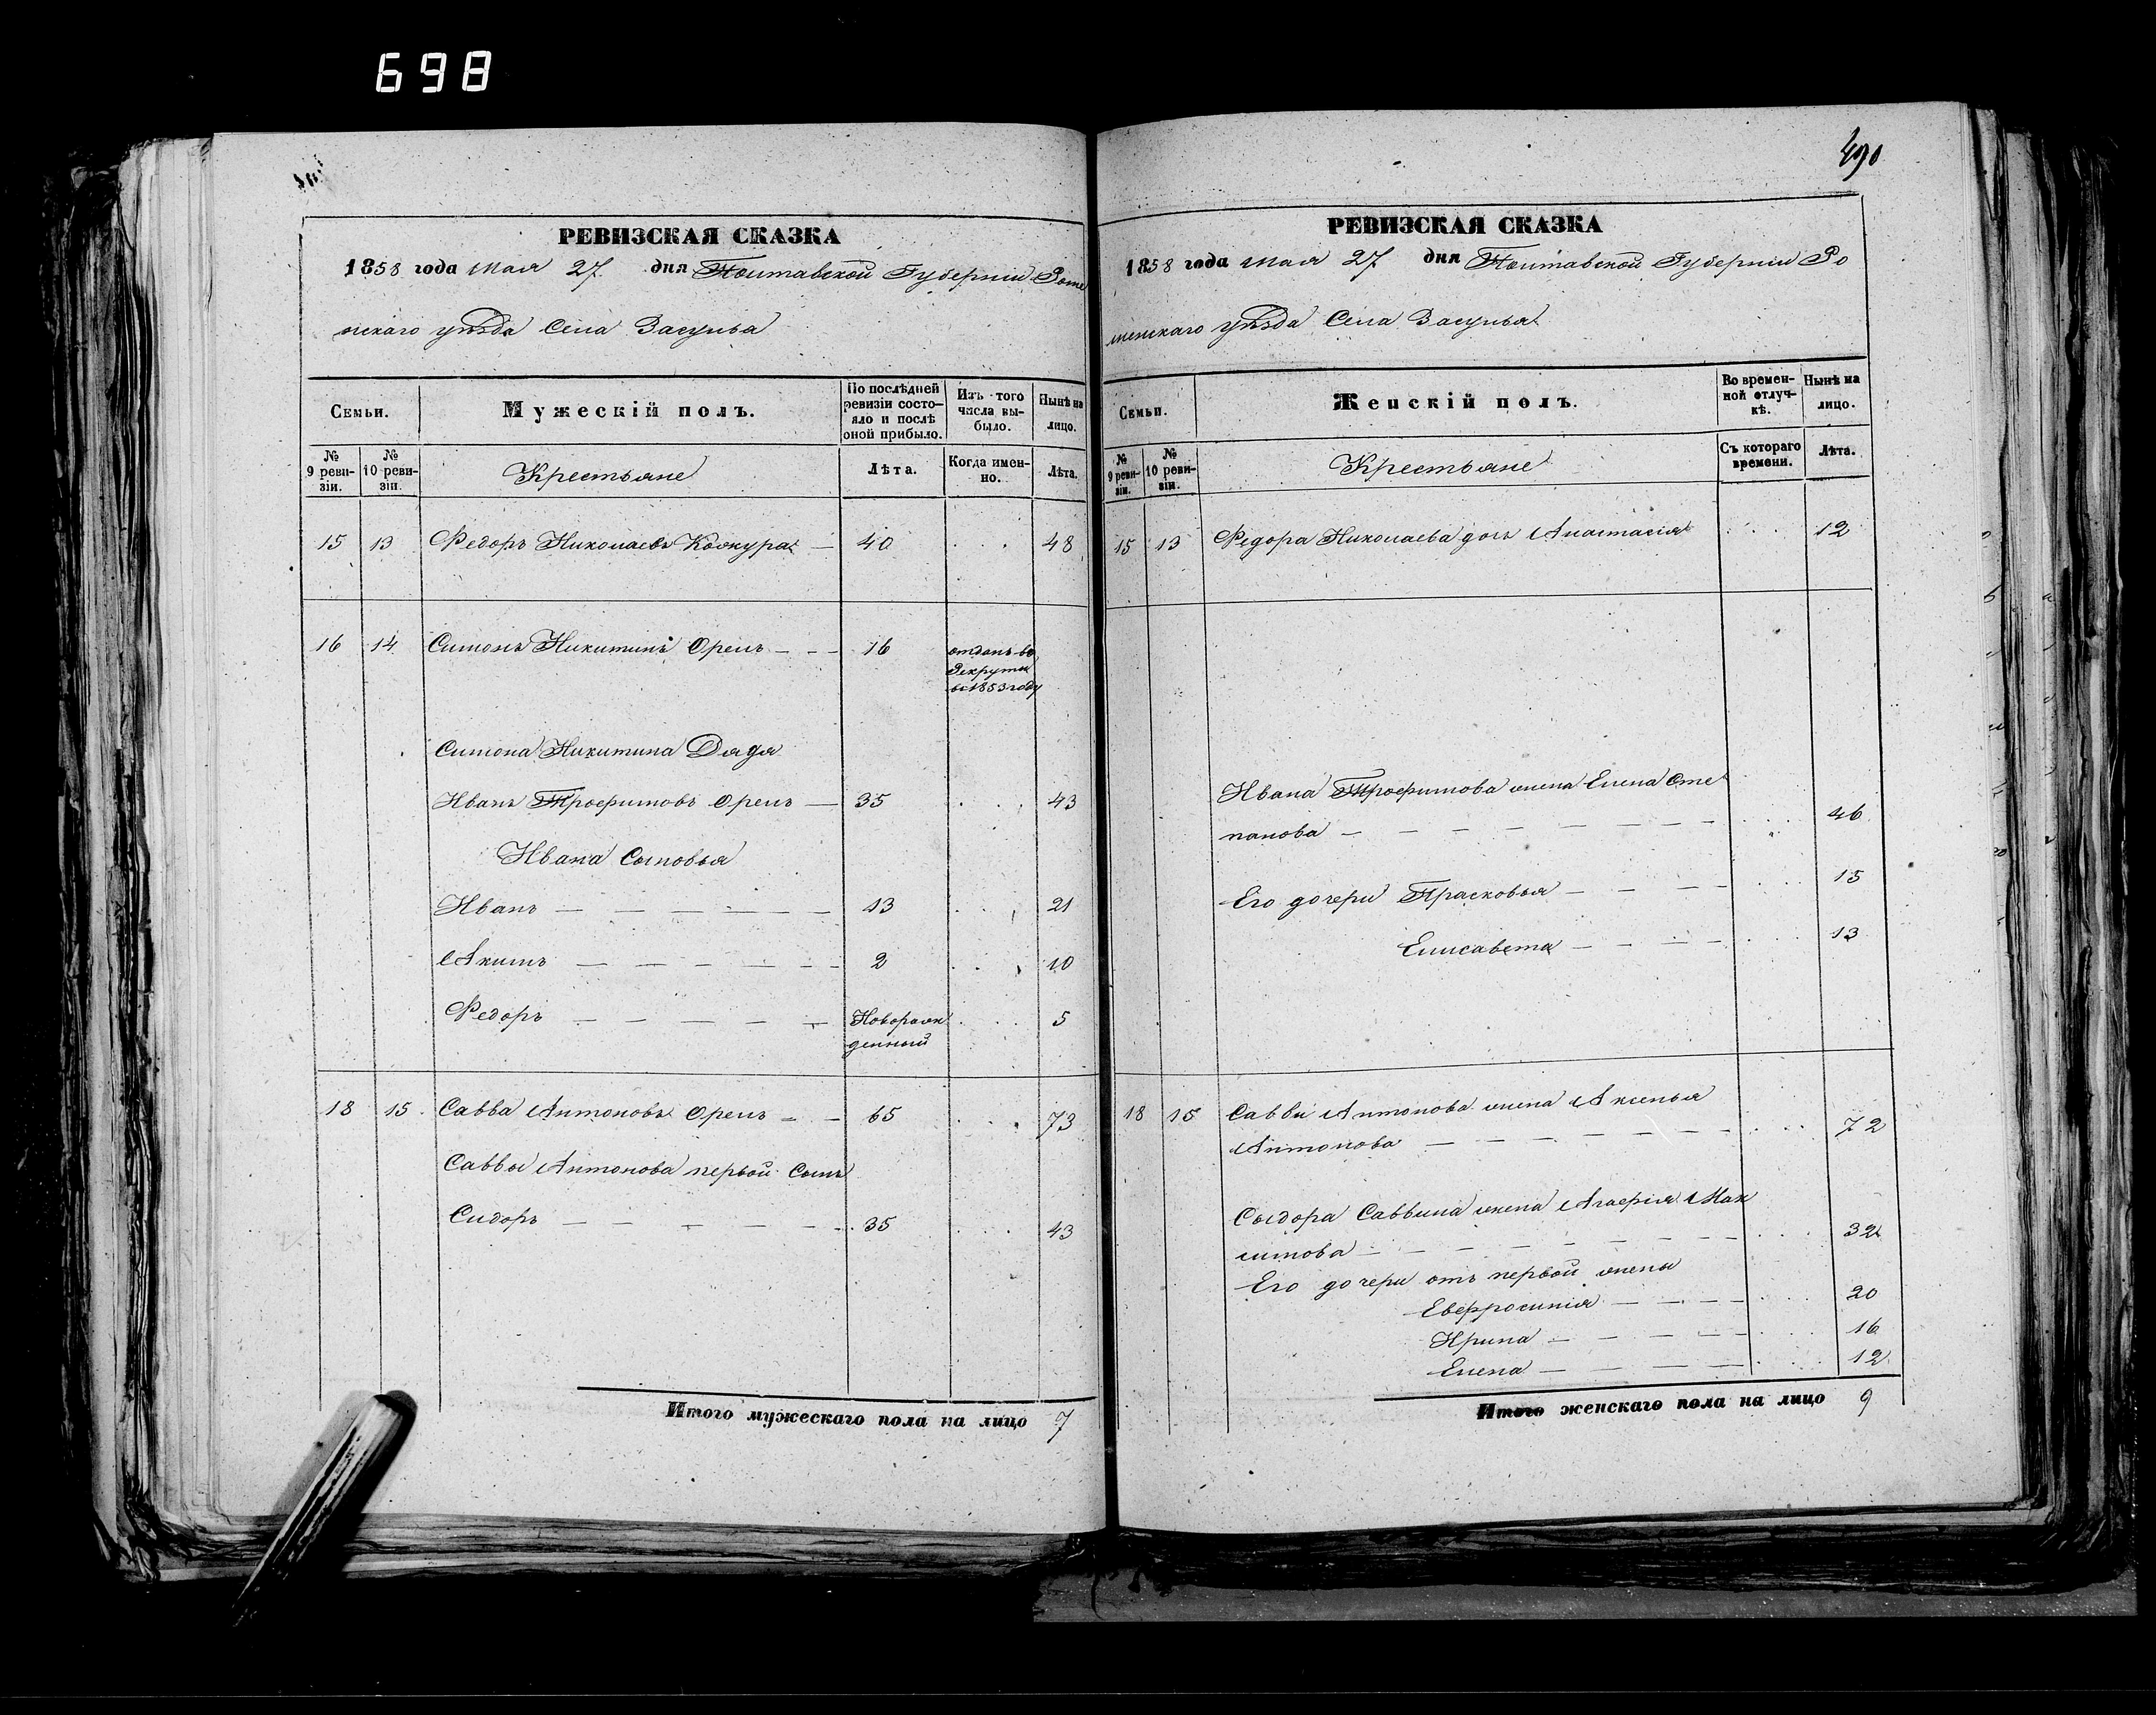 698
РЕВИЗСКАЯ СКАЗКА
1858 года мая 27 дня Полтавской Губерніи Роме
нскаго уѣзда Села Засулья
Семьи.
Мужескій полъ.
По послѣдней
ревизіи состо-
яло и послѣ
оной прибыло.
Изъ того
числа вы-
было.
Нынѣ на
лицо.
№
9 реви-
зіи.
№
10 реви-
зіи.
Крестьяне
Лѣта.
Когда имен-
но.
Лѣта.
15 13 Федоръ Николаевъ — 40 48
16 14 Симонъ Никитинъ Орелъ — — 16 отданъ въ
Рекруты
въ 1853 году
Симона Никитина Дядя
Иванъ Трофимовъ Орелъ — 35 43
Ивана Сыновья
Иванъ — — — — — — 13 21
Акимъ — — — — — — 2 10
Федоръ — — — — — Новорож 5
денный
18 15 Савва Антоновъ Орелъ — — 65 73
Саввы Антонова первой Сынъ
Сидоръ — — — — — — 35 43
Итого мужескаго пола на лицо 7
490
РЕВИЗСКАЯ СКАЗКА
1858 года мая 27 дня Полтавской Губерніи Ро
менскаго уѣзда Села Засулья
Семьи.
Женскій полъ.
Во времен-
ной отлуч-
кѣ.
Нынѣ на
лицо.
№
9 реви-
зіи.
№
10 реви-
зіи.
Крестьяне
Съ котораго
времени.
Лѣта.
15 13 Федора Николаева дочь Анастасія 12
Ивана Трофимова жена Елена Сте
панова — — — — — — — — 46
Его дочери Прасковья — — — — 15
Елисавета — — — — 13
18 15 Саввы Антонова жена Аксенья
Антонова — — — — — — 72
Сыдора Саввина жена Агафія Мак
симова — — — — — — — — 32
Его дочери отъ первой жены
Евфросинія — — — — 20
Ирина — — — — — 16
Елена — — — — — 12
Итого женскаго пола на лицо 9